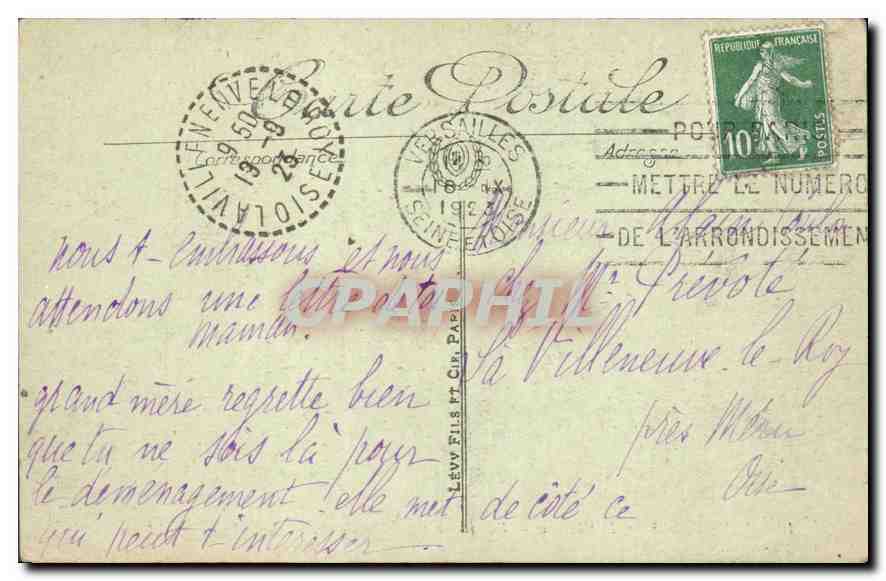 Carte Postale
Correspondance
Adresse
REPUBLIQUE FRANÇAISE
10c
POSTES
VERSAILLES
18 IX
1923
SEINE ET OISE
LA VILLENEUVE LE ROY OISE
9 50
19 -9
23
POUR PARIS
METTRE LE NUMERO
DE L'ARRONDISSEMENT
nous t'embrassons et nous
attendons une lettre de ta
maman.
grand mère regrette bien
que tu ne sois là pour
le déménagement elle met de côté ce
qui peut t'intéresser
Monsieur Alain
chez Mr Prévoté
La Villeneuve-le-Roy
près Méru
Oise
LÉVY FILS ET CIE, PARIS
CPARAMA
CPAPHIL